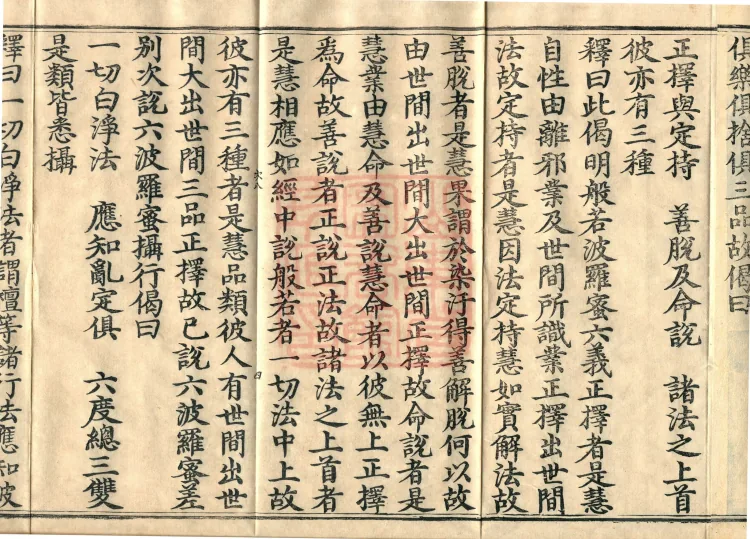 俱樂俱捨俱三品故偈曰
正擇與定持　善脫及命說　諸法之上首
彼亦有三種
釋曰此偈明般若波羅蜜六義正擇者是慧
自性由離邪業及世間所識業正擇出世間
法故定持者是慧因法定持慧如實解法故
善脫者是慧果謂於染汙得善解脫何以故
由世間出世間大出世間正擇故命說者是
慧業由慧命及善說慧命者以彼無上正擇
爲命故善說者正說正法故諸法之上首者
是慧相應如經中說般若者一切法中上故
彼亦有三種者是慧品類彼人有世間出世
間大出世間三品正擇故已說六波羅蜜差
別次說六波羅蜜攝行偈曰
一切白淨法　應知亂定俱　六度總三雙
是類皆悉攝
釋曰一切白淨法者謂檀等諸行法應知彼